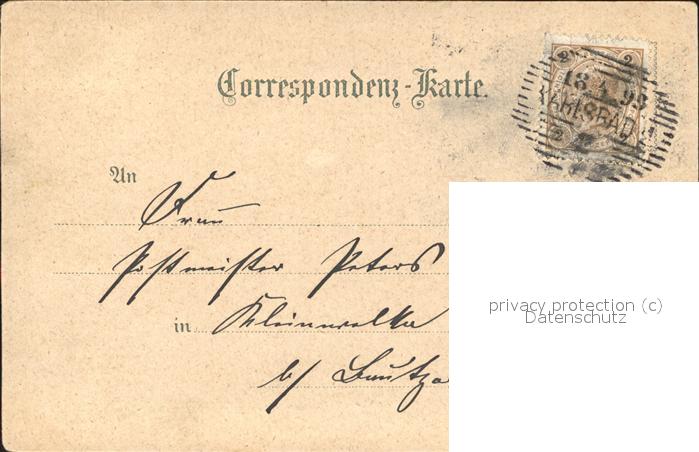 Correspondenz-Karte.
2 2
18 4 98
KARLSBAD
2
An
Frau
Postmeister Peters
in Kleinwelka
b/ Bautze
privacy protection (c)
Datenschutz